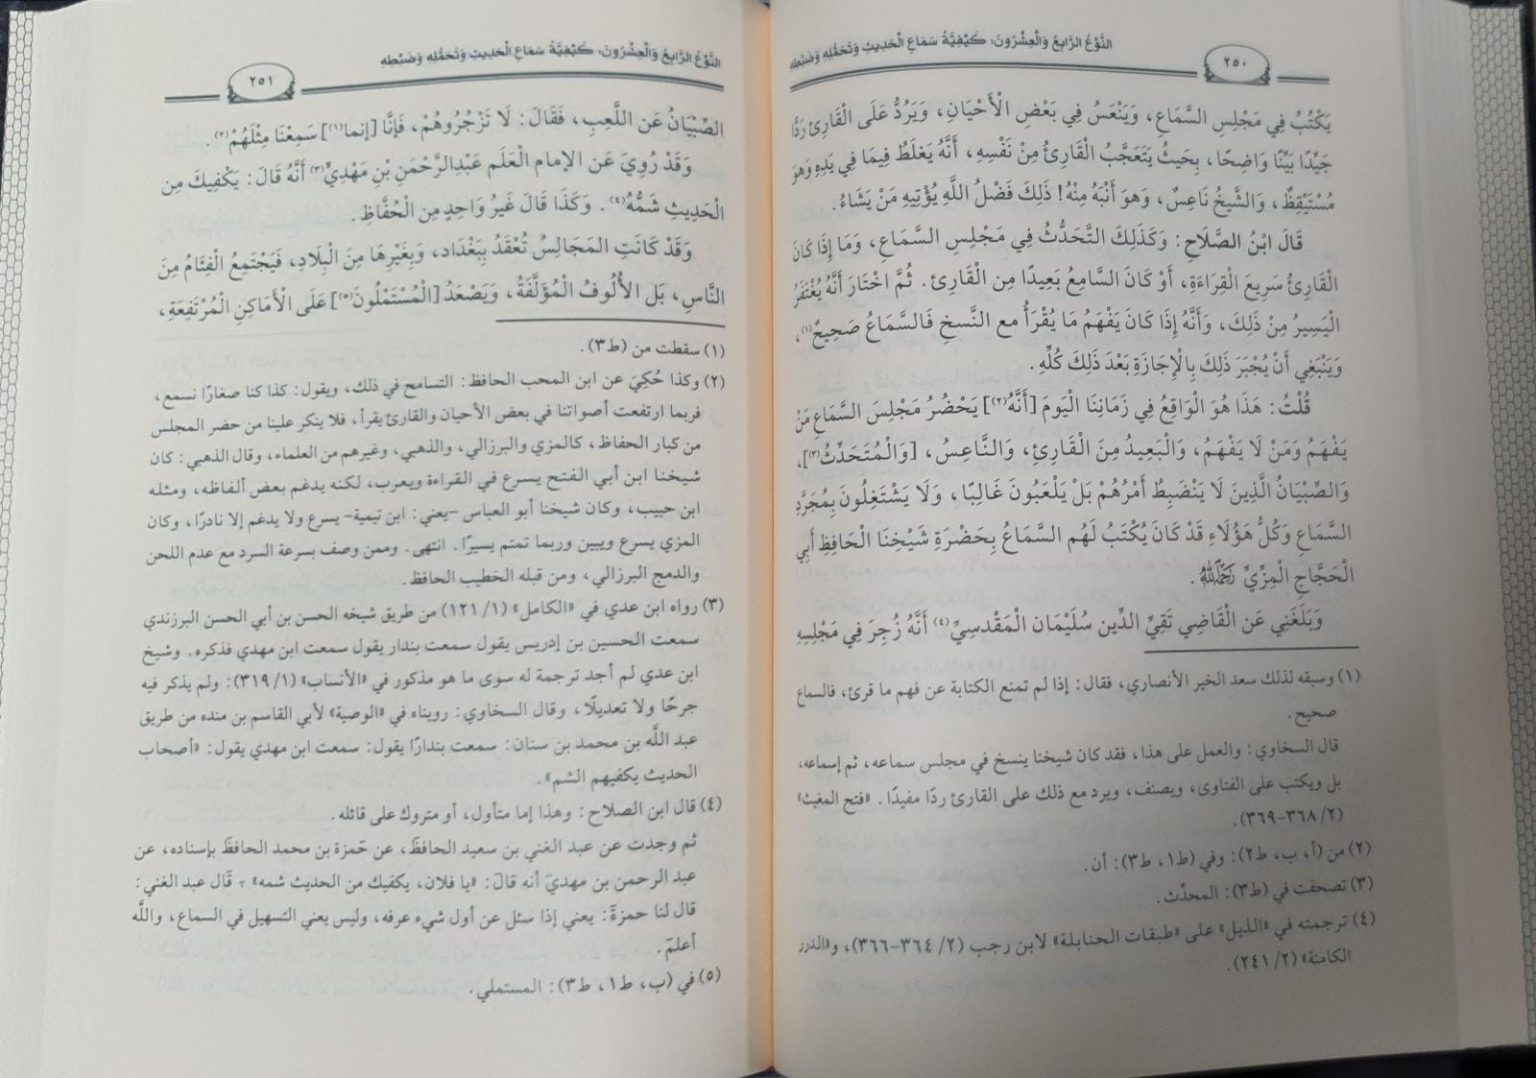 النَّوْعُ الرَّابِعُ وَالْعِشْرُونَ: كَيْفِيَّةُ سَمَاعِ الْحَدِيثِ وَتَحَمُّلِهِ وَضَبْطِهِ
٢٥٠
يَكْتُبُ فِي مَجْلِسِ السَّمَاعِ، وَيَنْعَسُ فِي بَعْضِ الْأَحْيَانِ، وَيَرُدُّ عَلَى الْقَارِئِ رَدًّا
جَيِّدًا بَيِّنًا وَاضِحًا، بِحَيثُ يَتَعَجَّبُ الْقَارِئُ مِنْ نَفْسِهِ، أَنَّهُ يَغلَطُ فِيمَا فِي يَدِهِ وَهوَ
مُسْتَيْقِظٌ، وَالشَّيخُ نَاعِسٌ، وَهوَ أَنْبَهُ مِنْهُ! ذَلِكَ فَضْلُ اللَّهِ يُؤْتِيهِ مَنْ يَشَاءُ.
قَالَ ابْنُ الصَّلَاحِ: وَكَذَلِكَ التَّحَدُّثُ فِي مَجْلِسِ السَّمَاعِ، وَمَا إِذَا كَانَ
الْقَارِئُ سَرِيعَ الْقِرَاءَةِ، أَوْ كَانَ السَّامِعُ بَعِيدًا مِن الْقَارِئ. ثُمَّ اخْتَارَ أَنَّهُ يُغْتَفَرُ
الْيَسِيرُ مِنْ ذَلِكَ، وَأَنَّهُ إِذَا كَانَ يَفْهَمُ مَا يُقْرَأُ مع النَّسخِ فَالسَّمَاعُ صَحِيحٌ(١)،
وَيَنْبَغِي أَنْ يُجْبَرَ ذَلِكَ بِالْإِجَازَةِ بَعْدَ ذَلِكَ كُلِّهِ.
قُلْتُ: هَذَا هُوَ الْوَاقِعُ فِي زَمَانِنَا الْيَومَ [أَنَّهُ(٢)] يَحْضُرُ مَجْلِسَ السَّمَاعِ مَنْ
يَفْهَمُ وَمَنْ لَا يَفْهَمُ، وَالْبَعِيدُ مِنَ الْقَارِئِ، وَالنَّاعِسُ، [وَالْمُتَحَدِّثُ(٣)]،
وَالصِّبْيَانُ الَّذِينَ لَا يَنْضَبِطُ أَمْرُهُمْ بَلْ يَلْعَبُونَ غَالِبًا، وَلَا يَشْتَغِلُونَ بِمُجَرَّدِ
السَّمَاعِ وَكُلُّ هَؤُلَاءِ قَدْ كَانَ يُكْتَبُ لَهُم السَّمَاعُ بِحَضْرَةِ شَيْخِنَا الْحَافِظِ أَبِي
الْحَجَّاجِ الْمِزِّيِّ رَحِمَهُ اللَّهُ.
وَبَلَغَنِي عَن الْقَاضِي تَقِيِّ الدِّين سُلَيْمَان الْمَقْدسِيِّ(٤) أَنَّهُ زُجِرَ فِي مَجْلِسِهِ
(١) وسبقه لذلك سعد الخير الأنصاري، فقال: إذا لم تمنع الكتابة عن فهم ما قرئ، فالسماع
صحيح.
قال السخاوي: والعمل على هذا، فقد كان شيخنا ينسخ في مجلس سماعه، ثم إسماعه،
بل ويكتب على الفتاوى، ويصنف، ويرد مع ذلك على القارئ ردًا مفيدًا. «فتح المغيث»
(٢/ ٣٦٨-٣٦٩).
(٢) من (أ، ب، ط٢): وفي (ط١، ط٣): أن.
(٣) تصحفت في (ط٣): المحدِّث.
(٤) ترجمته في «الذيل» على «طبقات الحنابلة» لابن رجب (٢/ ٣٦٤-٣٦٦)، و«الدرر
الكامنة» (٢/ ٢٤١).
النَّوْعُ الرَّابِعُ وَالْعِشْرُونَ: كَيْفِيَّةُ سَمَاعِ الْحَدِيثِ وَتَحَمُّلِهِ وَضَبْطِهِ
٢٥١
الصِّبْيَانُ عَن اللَّعِبِ، فَقَالَ: لَا تَزْجُرُوهُمْ، فَإِنَّا [إنما(١)] سَمِعْنَا مِثْلَهُمْ(٢).
وَقَدْ رُوِيَ عَن الإمام الْعَلَم عَبْدِالرَّحْمَنِ بْنِ مَهْدِيٍّ(٣) أَنَّهُ قَالَ: يَكْفِيكَ مِن
الْحَدِيثِ شَمُّهُ(٤). وَكَذَا قَالَ غَيرُ وَاحِدٍ مِن الْحُفَّاظِ.
وَقَدْ كَانَتِ المَجَالِسُ تُعْقَدُ بِبَغْدَاد، وَبِغَيْرِهَا مِنَ الْبِلَادِ، فَيَجْتَمِعُ الْفِئَامُ مِنَ
النَّاسِ، بَل الأُلُوفُ الْمُؤَلَّفَةُ، وَيَصْعَدُ [الْمُسْتَمْلُونَ(٥)] عَلَى الْأَمَاكِنِ الْمُرْتَفِعَةِ،
(١) سقطت من (ط٣).
(٢) وكذا حُكِيَ عن ابن المحب الحافظ: التسامح في ذلك، ويقول: كذا كنا صغارًا نسمع،
فربما ارتفعت أصواتنا في بعض الأحيان والقارئ يقرأ، فلا ينكر علينا من حضر المجلس
من كبار الحفاظ، كالمزي والبرزالي، والذهبي، وغيرهم من العلماء، وقال الذهبي: كان
شيخنا ابن أبي الفتح يسرع في القراءة ويعرب، لكنه يدغم بعض ألفاظه، ومثله
ابن حبيب، وكان شيخنا أبو العباس -يعني: ابن تيمية- يسرع ولا يدغم إلا نادرًا، وكان
المزي يسرع ويبين وربما تمتم يسيرًا. انتهى. وممن وصف بسرعة السرد مع عدم اللحن
والدمج البرزالي، ومن قبله الخطيب الحافظ.
(٣) رواه ابن عدي في «الكامل» (١/ ١٢١) من طريق شيخه الحسن بن أبي الحسن البرزندي
سمعت الحسين بن إدريس يقول سمعت بندار يقول سمعت ابن مهدي فذكره. وشيخ
ابن عدي لم أجد ترجمة له سوى ما هو مذكور في «الأنساب» (١/ ٣١٩): ولم يذكر فيه
جرحًا ولا تعديلًا، وقال السخاوي: رويناه في «الوصية» لأبي القاسم بن منده من طريق
عبد اللَّه بن محمد بن سنان: سمعت بندارًا يقول: سمعت ابن مهدي يقول: «أصحاب
الحديث يكفيهم الشم».
(٤) قال ابن الصلاح: وهذا إما متأول، أو متروك على قائله.
ثم وجدت عن عبد الغني بن سعيد الحافظ، عن حَمزة بن محمد الحافظ بإسناده، عن
عبد الرحمن بن مهدي أنه قال: «يا فلان، يكفيك من الحديث شمه». قال عبد الغني:
قال لنا حمزة: يعني إذا سئل عن أول شيء عرفه، وليس يعني التسهيل في السماع، واللَّه
أعلم.
(٥) في (ب، ط١، ط٣): المستملي.